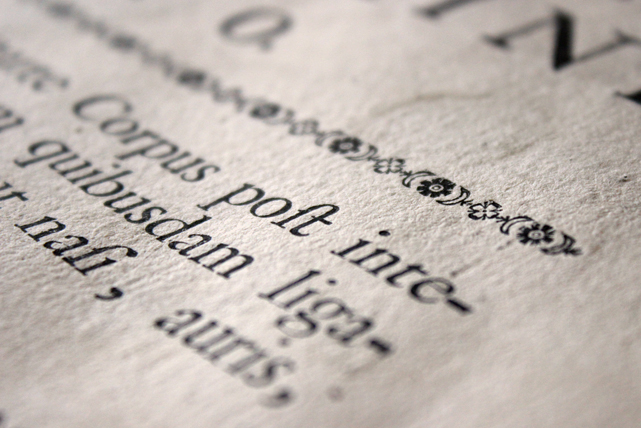 IN
Q.
Corpus poſt inte-
quibusdam liga-
naſi, auris,